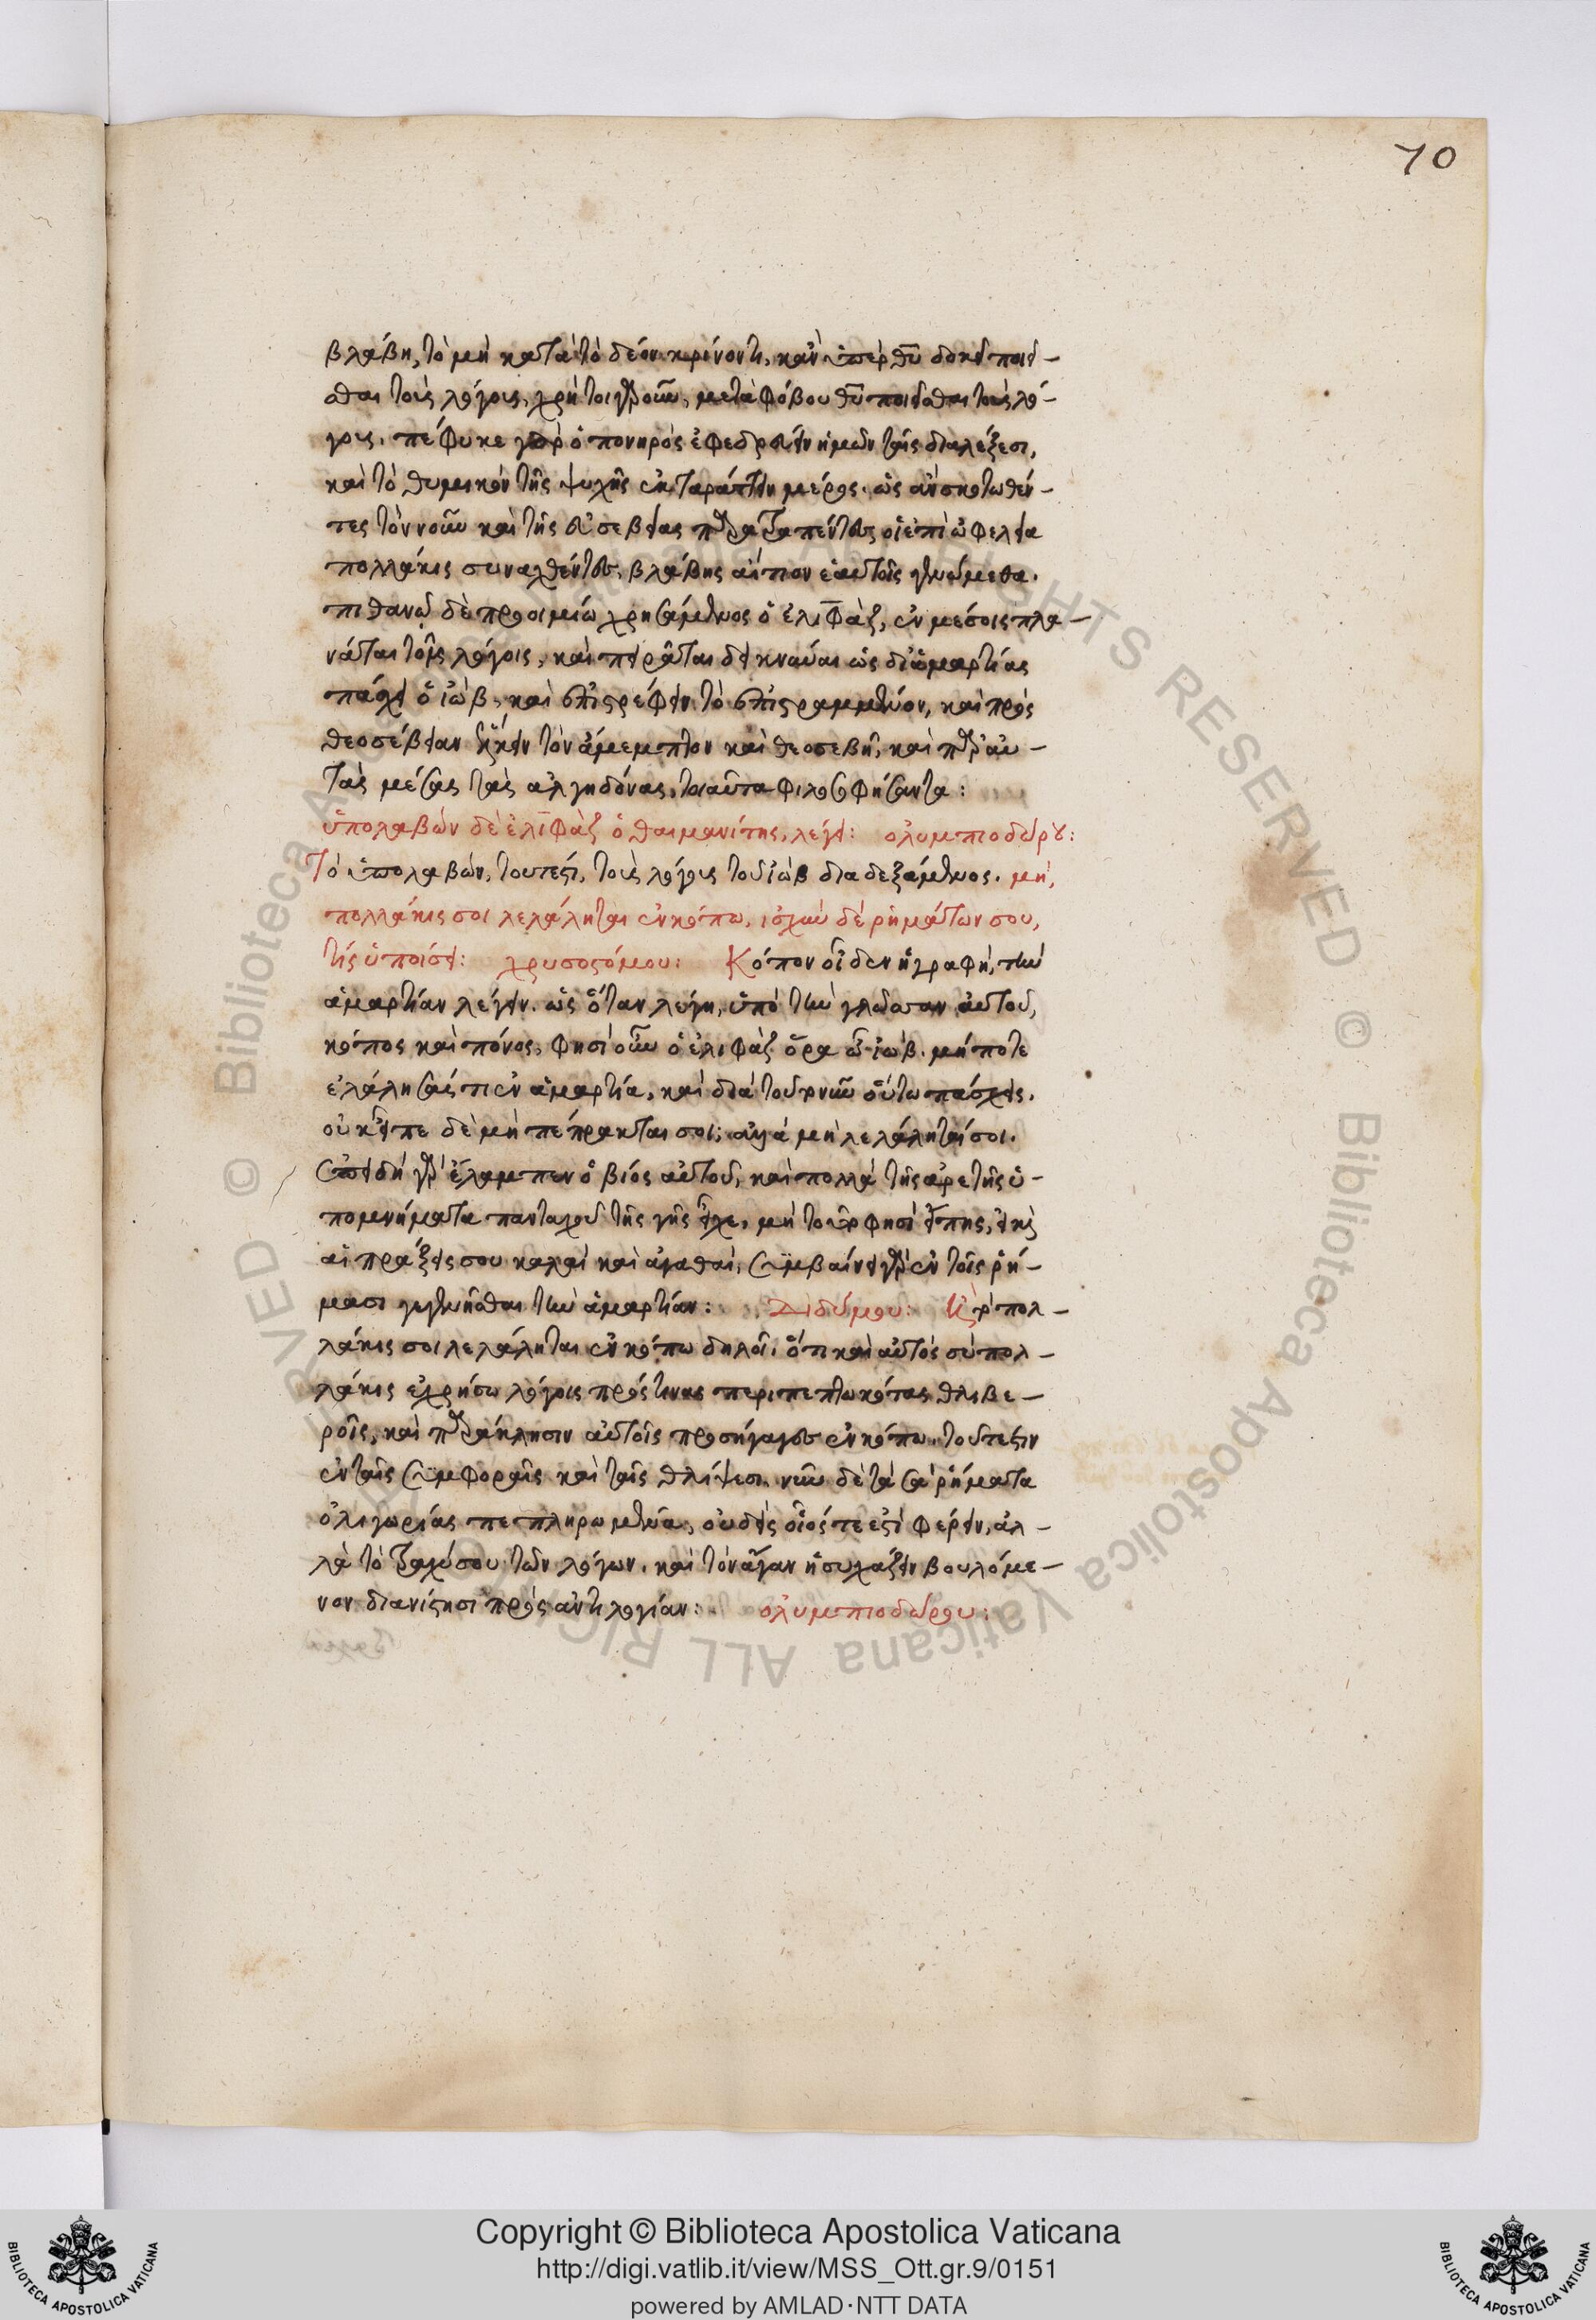 70
βλάβη, τὸ μὴ κατὰ τὸ δέον κρίνοντι, κἂν ὑπὲρ θυ δοκεῖ ποιεῖ-
σθαι τοὺς λόγους, χρὴ τοιγαροῦν, μετὰ φόβου θυ ποιεῖσθαι τοὺς λό-
γους. πέφυκε γὰρ ὁ πονηρὸς ἐφεδρεύειν ἡμῶν ταῖς διαλέξεσι,
καὶ τὸ θυμικὸν τῆς ψυχῆς ἐκταράττειν μέρος. ὡς ἂν σκοτωθέν-
τες τὸν νοῦν καὶ τῆς εὐσεβείας παρατραπέντες οἱ ἐπὶ ὠφελεία
πολλάκις συναχθέντες, βλάβης αἴτιον ἑαυτοῖς γενώμεθα.
πιθανῶ δὲ προοιμίω χρησάμενος ὁ ἐλιφὰζ, ἐν μέσοις πλα-
νᾶται τοῖς λόγοις, καὶ πειρᾶται δεικνύναι ὡς δι' ἁμαρτίας
πάσχει ὁ ἰὼβ, καὶ ἐπιστρέφειν τὸ ἐπιστραμμένον, καὶ πρὸς
θεοσέβειαν ἕλκειν τὸν ἄμεμπτον καὶ θεοσεβῆ, καὶ παρ' αὐ-
τὰς μέσας τὰς ἀλγηδόνας, τοιαῦτα φιλοσοφήσαντα:
ὑπολαβὼν δὲ ἐλιφὰζ ὁ θαιμανίτης, λέγει: ολυμπιοδώρου:
Τὸ ὑπολαβών, τουτέστι, τοὺς λόγους τοῦ ἰὼβ διαδεξάμενος. μὴ,
πολλάκις σοι λελάληται ἐν κόπω, ἰσχὺν δὲ ῥημάτων σου,
τίς ὑποίσει: χρυσοστόμου: Κόπον οἶδεν ἡ γραφὴ, τὴν
ἁμαρτίαν λέγειν. ὡς ὅταν λέγη, ὑπὸ τὴν γλῶσσαν αὐτοῦ,
κόπος καὶ πόνος, φησὶ οὖν ὁ ἐλιφὰζ ὅρα ὦ ἰὼβ. μήποτε
ἐλάλησάς τι ἐν ἁμαρτία, καὶ διὰ τοῦτο νῦν οὕτω πάσχεις.
οὐκ εἶπε δὲ μὴ πέπρακταί σοι; ἀλλὰ μὴ λελάληταί σοι.
ἐπειδὴ γὰρ ἔλαμπεν ὁ βίος αὐτοῦ, καὶ πολλὰ τῆς ἀρετῆς ὑ-
πομνήματα πανταχοῦ τῆς γῆς εἶχε, μὴ τοῦτο φησὶ εἴπης, εἰ καὶ
αἱ πράξεις σου καλαὶ καὶ ἀγαθαὶ, συμβαίνει γὰρ ἐν τοῖς ῥή-
μασι γεγενῆσθαι τὴν ἁμαρτίαν: Διδύμου: Καὶ τὸ πολ-
λάκις σοι λελάληται ἐν κόπω δηλοῖ, ὅτι καὶ αὐτὸς σὺ πολ-
λάκις ἐχρήσω λόγοις πρός τινας περιπεπτωκότας θλιβε-
ροῖς, καὶ παράκλησιν αὐτοῖς προσήγαγες ἐν κόπω, τουτέστιν
ἐν ταῖς συμφοραῖς καὶ ταῖς θλίψεσι. νῦν δὲ τὰ σὰ ῥήματα
ὀλιγωρίας πεπληρωμένα, οὐδεὶς οἷός τε ἐστὶ φέρειν, ἀλ-
λὰ τὸ τραχύ σου τῶν λόγων, καὶ τὸν ἄγαν ἡσυχάζειν βουλόμε-
νον διανίστησι πρὸς ἀντιλογίαν: ολυμπιοδώρου:
Copyright © Biblioteca Apostolica Vaticana
http://digi.vatlib.it/view/MSS_Ott.gr.9/0151
powered by AMLAD·NTT DATA